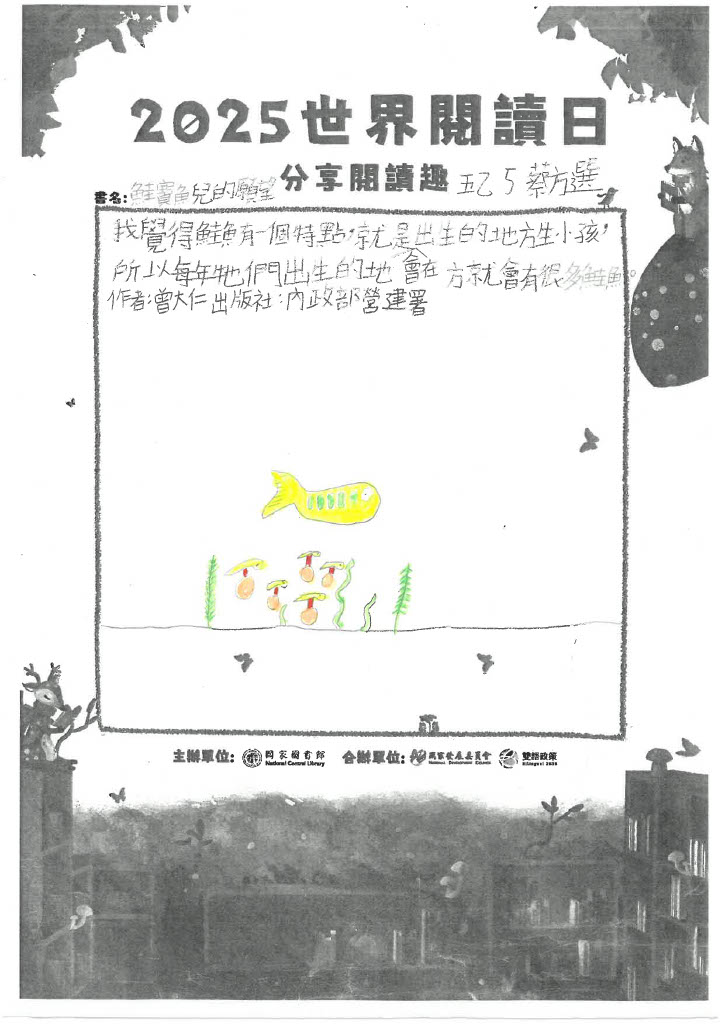 2025世界閱讀日
分享閱讀趣 五乙 5 蔡方選
書名:鮭寶魚兒的願望
我覺得鮭魚有一個特點,就是會在出生的地方生小孩,
所以每年牠們出生的地方就會有很多鮭魚。
作者:曾大仁 出版社:內政部營建署
主辦單位: 國家圖書館 National Central Library 合辦單位: 國家發展委員會 NATIONAL DEVELOPMENT COUNCIL 雙語政策 Bilingual 2030